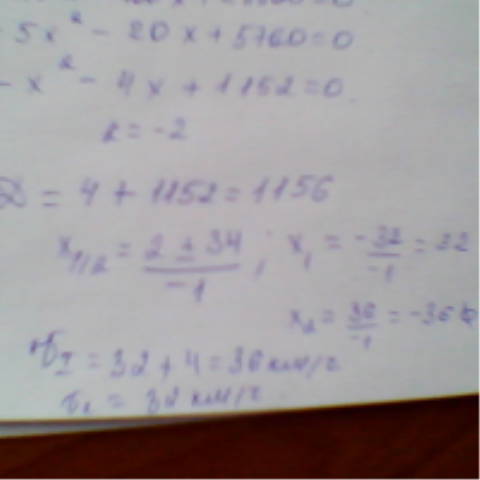 - 5x² - 20x + 5760 = 0
- x² - 4x + 1152 = 0
k = -2
D = 4 + 1152 = 1156
x₁/₂ = (2 ± 34)/-1 , x₁ = -32/-1 = 32
x₂ = 36/-1 = -36
v₁ = 32 + 4 = 36 км/г
= 32 км/г